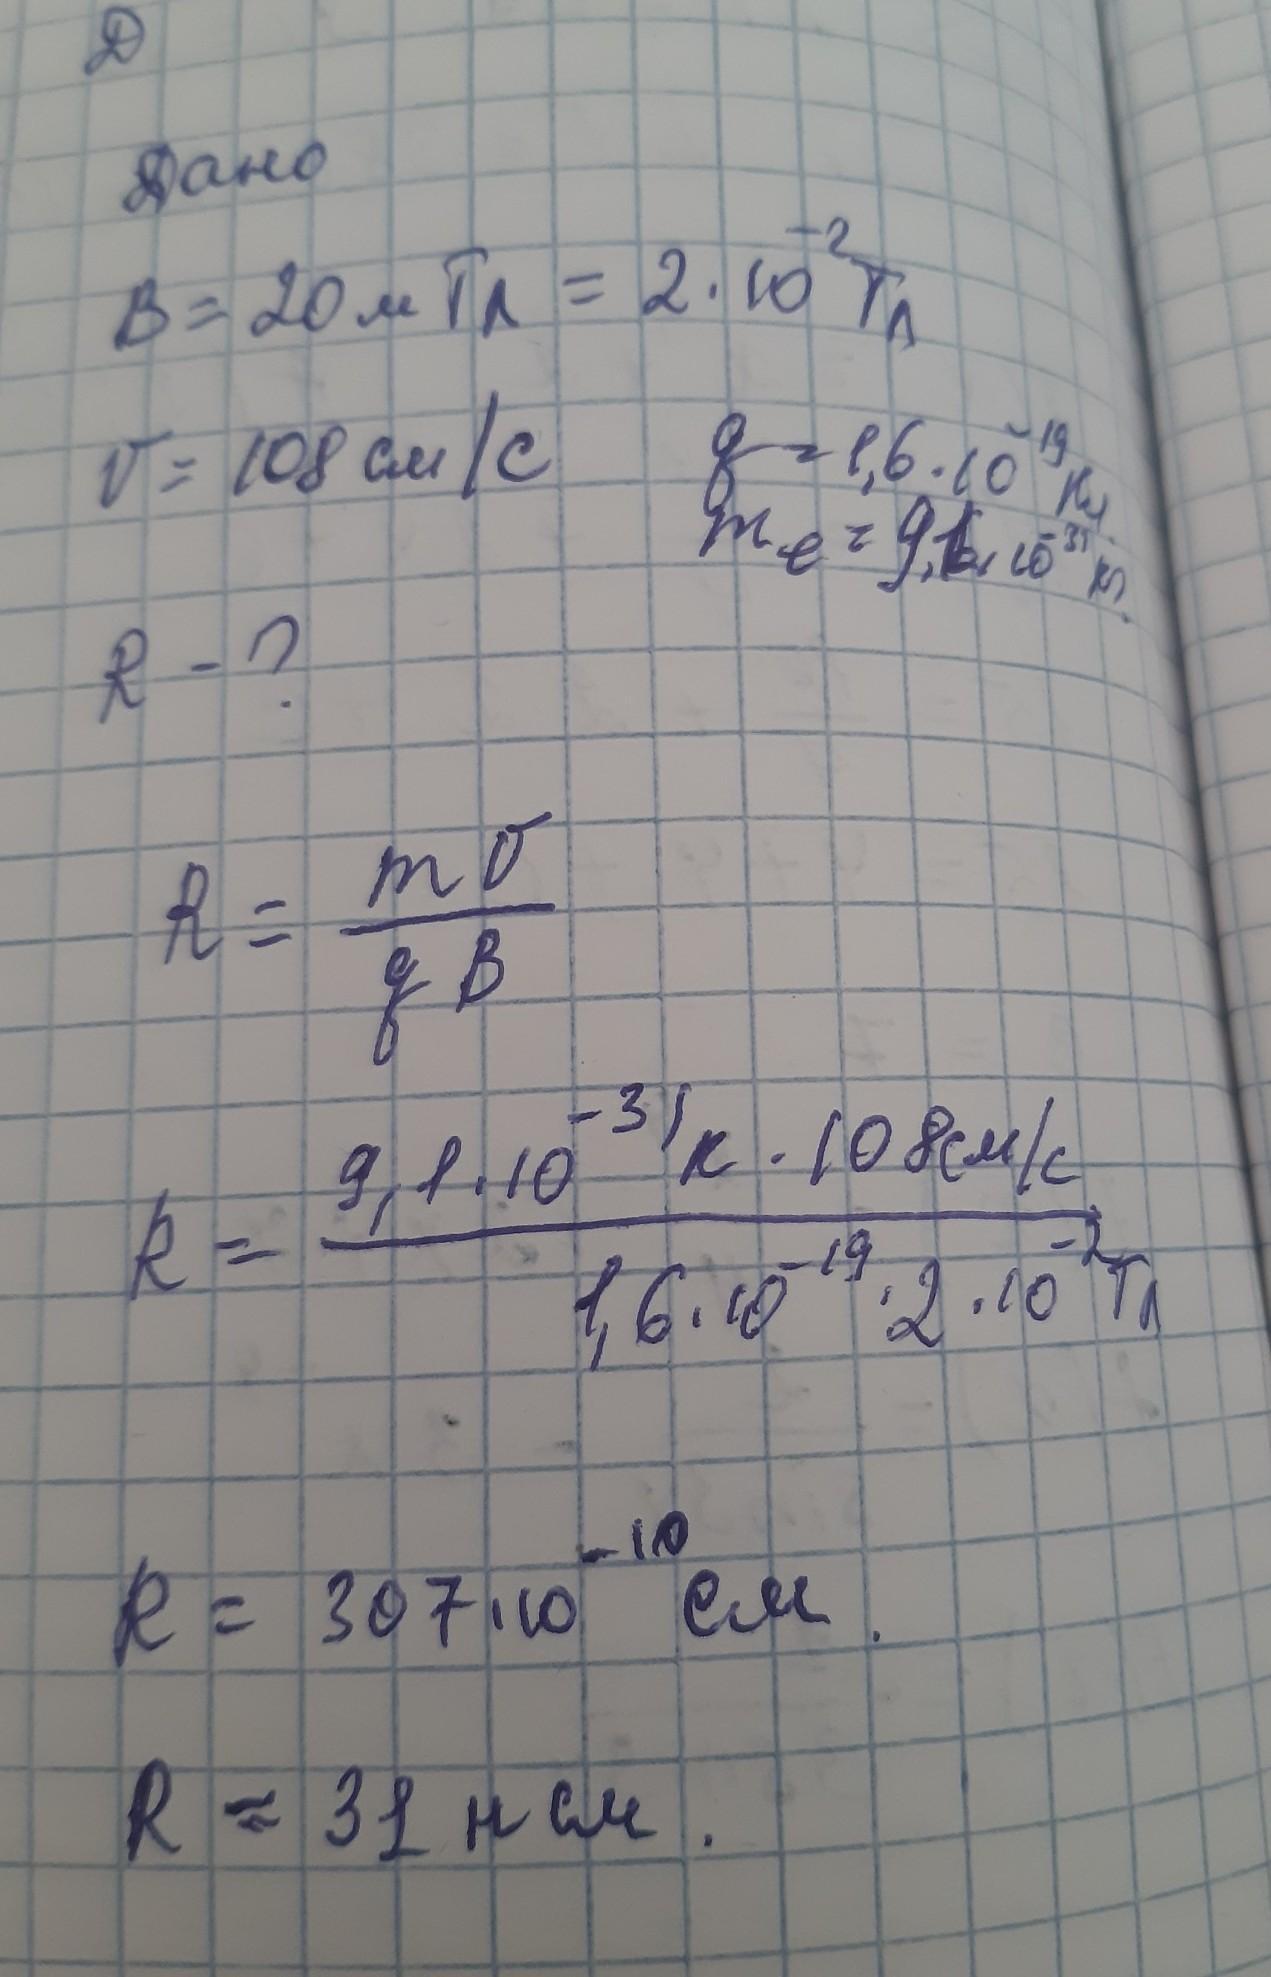 Д
Дано
B = 20 мТл = 2·10⁻² Тл
υ = 108 см/с
q = 1,6·10⁻¹⁹ Кл
mₑ = 9,1·10⁻³¹ кг.
R - ?
R = mυ / qB
R = 9,1·10⁻³¹ к · 108 см/с / 1,6·10⁻¹⁹ · 2·10⁻² Тл
R = 307·10⁻¹⁰ см.
R ≈ 31 н см.